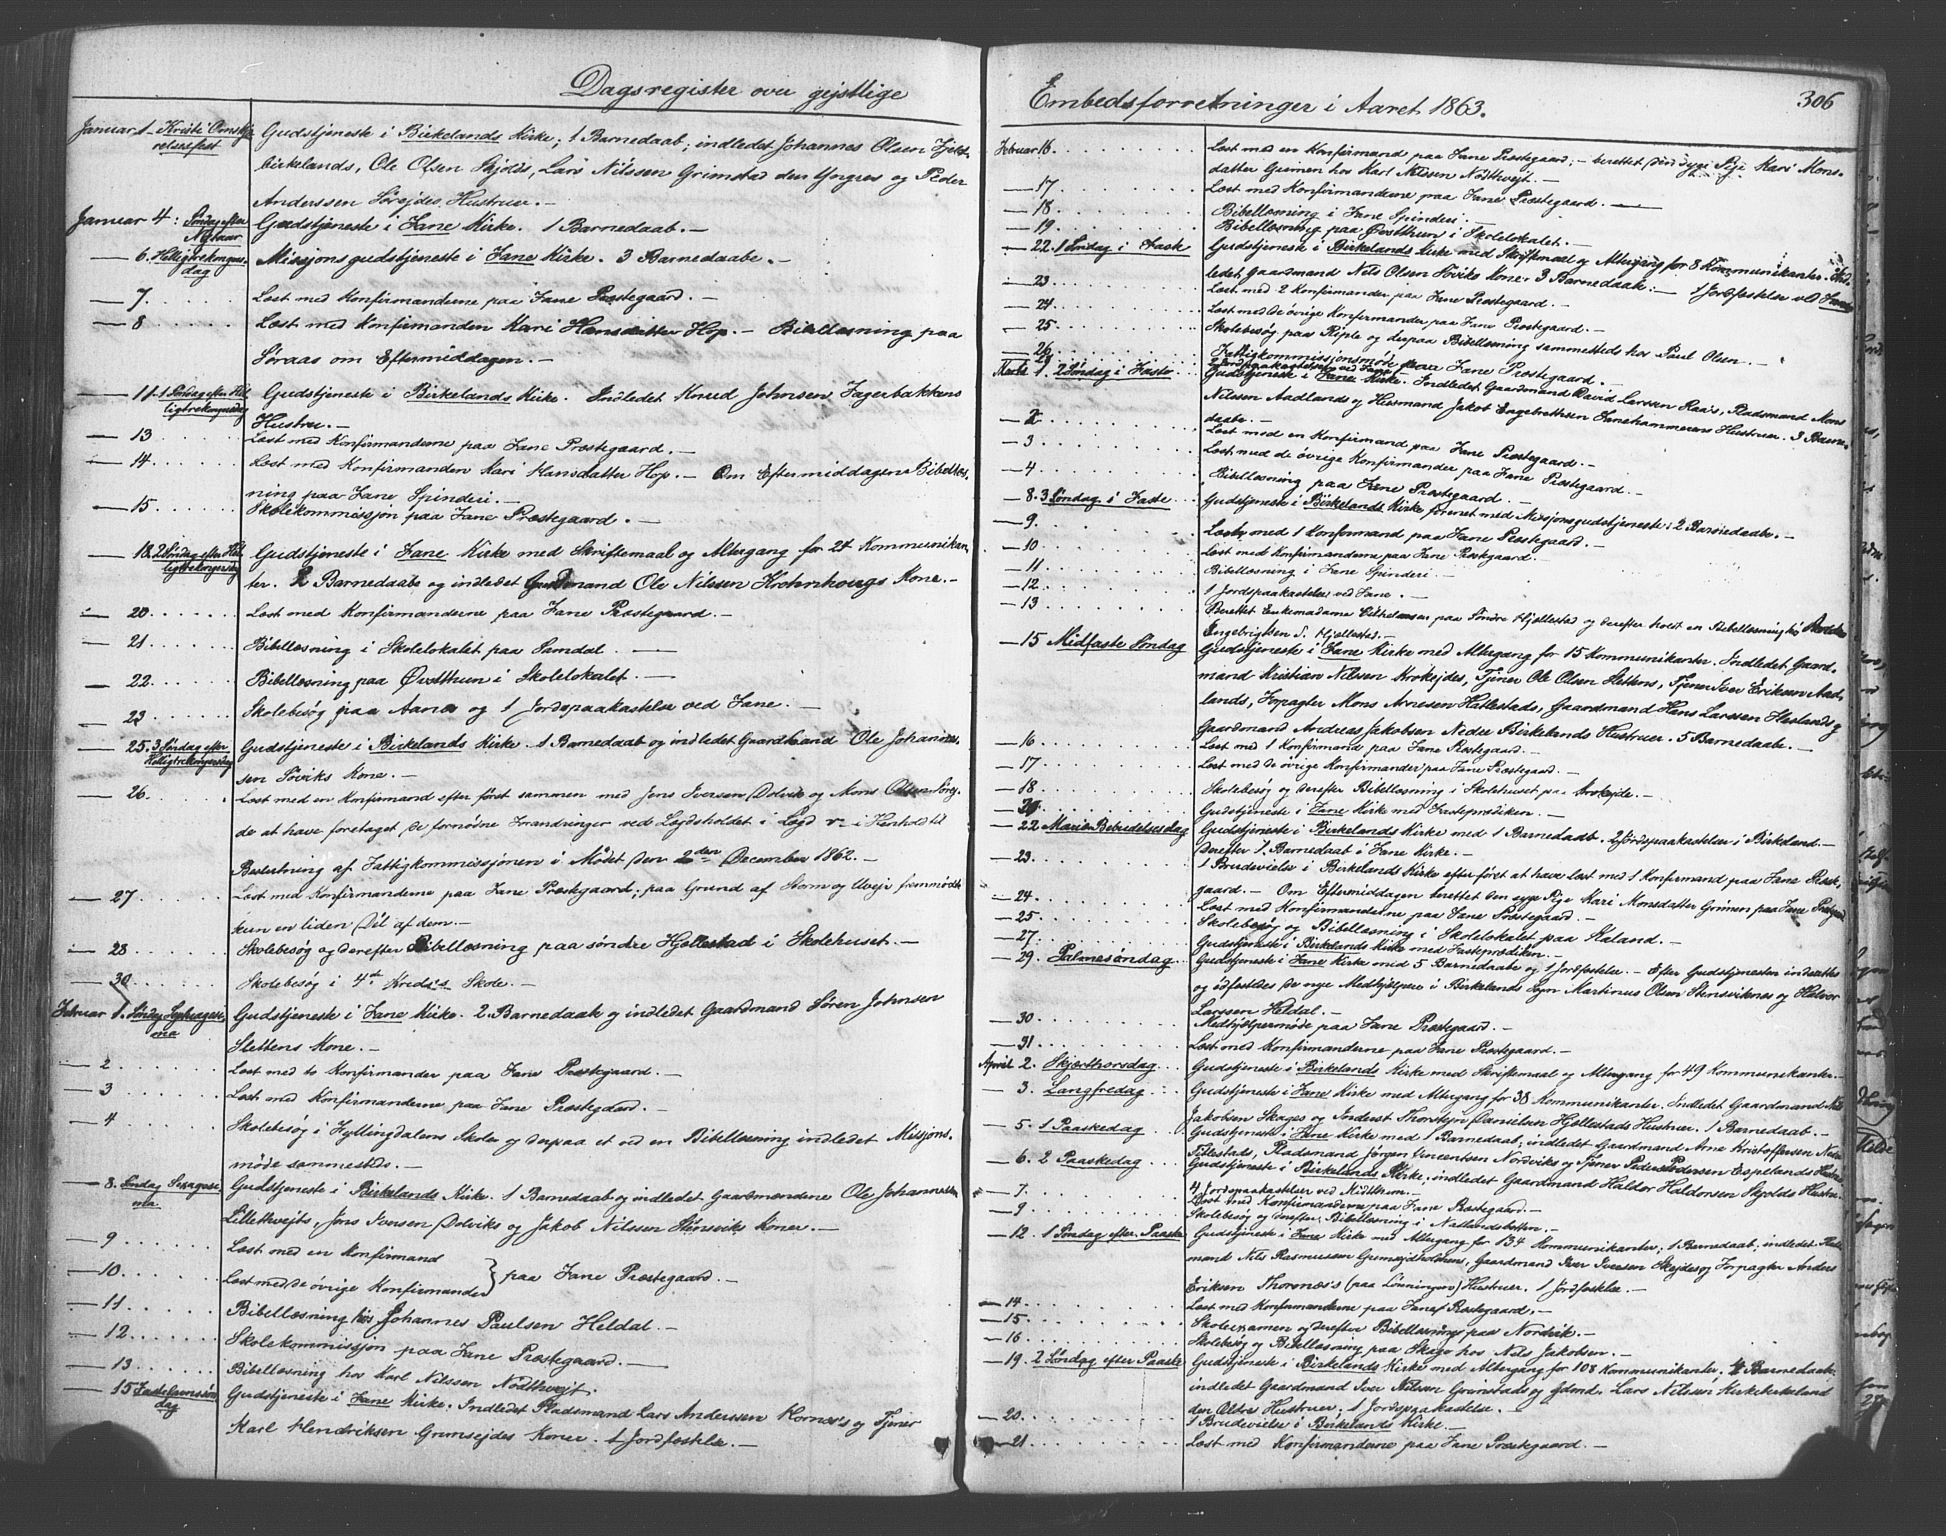 Dagsregister over gejstlige
Januar 1. Kristi Omskjæ- Gudstjeneste i Birkelands Kirke; 1 Barnedaab; indledet Johannes Olsen
relsesfest
Birkelands, Ole Olsen Skjolds, Lars Nilssen Grimstad den Yngres og Peder
Anderssen Sørejdes Hustruer. —
Januar 4: Søndag efter Gudstjeneste i Fane Kirke. 1 Barnedaab. —
Nytaar
— 6. Helligtrekongers- Missjonsgudstjeneste i Fane Kirke. 3 Barnedaabe. —
dag
— 7. Læst med Konfirmanderne paa Fane Præstegaard. —
— 8 Læst med Konfirmanden Kari Hansdatter Hop. — Bibellæsning paa
Søraas om Eftermiddagen. —
— 11. 1 Søndag efter Hel- Gudstjeneste i Birkelands Kirke. Indledet Knud Johnsen Fagerbakkens
ligtrekongersdag
Hustru. —
— 13 Læst med Konfirmanderne paa Fane Præstegaard. —
— 14. Læst med Konfirmanden Kari Hansdatter Hop. — Om Eftermiddagen Bibellæs-
ning paa Fane Spinderi. —
— 15. Skolekommissjon paa Fane Præstegaard. —
— 18. 2 Søndag efter Hel- Gudstjeneste i Fane Kirke med Skriftemaal og Altergang for 24 Kommunikan-
ligtrekongersdag
ter. 2 Barnedaabe og indledet Gaardmand Ole Nilssen Krohnhougs Kone. —
— 20. Læst med Konfirmanderne paa Fane Præstegaard. —
— 21. Bibellæsning i Skolelokalet paa Samdal. —
— 22. Bibellæsning paa Øvstthun i Skolelokalet. —
— 23 Skolebesøg paa og 1 Jordspaakastelse ved Fane. —
— 25. 3 Søndag efter Gudstjeneste i Birkelands Kirke. 1 Barnedaab og indledet Gaardmand Ole Johannes-
Helligtrekongersdag
sen Søviks Kone. —
— 26. Læst med en Konfirmand efter først sammen med Jens Iversen Dolvik og Mons Olsen
de at have foretaget de fornødne Forandringer ved Lægdsholdet i Lægd i Henhold til
Beslutning af Fattigkommissjonen i Mødet den 2den December 1862. —
— 27 Læst med Konfirmanderne paa Fane Præstegaard; paa Grund af Storm og Uvejr fremmødte
kun en liden Del af dem. —
— 28 Skolebesøg og derefter Bibellæsning paa søndre Hjellestad i Skolehuset. —
— 30. Skolebesøg i 4de Kreds's Skole. —
Februar 1. Søndag Septuagesi- Gudstjeneste i Fane Kirke. 2 Barnedaab og indledet Gaardmand Søren Johnsen
ma
Slettens Kone. —
— 2 Læst med to Konfirmander paa Fane Præstegaard. —
— 3 Læst med Konfirmanderne paa Fane Præstegaard. —
— 4 Skolebesøg i Hyllingdalens Skole og derpaa et ved en Bibellæsning indledet Missjons-
møde sammesteds. —
— 8. Søndag Sexagesi- Gudstjeneste i Birkelands Kirke. 1 Barnedaab og indledet Gaardmændene Ole Johannessen
ma
Lillethvejts, Jens Iversen Dolviks og Jakob Nilssen Stensviks Koner. —
— 9 Læst med en Konfirmand
— 10. Læst med de øvrige Konfirmander } paa Fane Præstegaard. —
— 11 Bibellæsning hos Johannes Paulsen Heldal. —
— 12. Skolekommissjon paa Fane Præstegaard. —
— 13 Bibellæsning hos Karl Nilssen Nødthvejt.
— 15 Fastelavnssøn- Gudstjeneste i Fane Kirke. Indledet Pladsmand Lars Anderssen Hornæs's og Tjener
dag
Karl Hendriksen Grimsejdes Koner. 1 Jordfæstelse. —
Embedsforretninger i Aaret 1863. 306
Februar 16. Læst med en Konfirmand paa Fane Præstegaard; — berettet den syge Pige Kari Mons-
datter Grimen hos Karl Nilssen Nødthvejt. —
— 17 Læst med Konfirmanderne paa Fane Præstegaard. —
— 18 Bibellæsning i Fane Spinderi. —
— 19. Bibellæsning paa Øvstthun i Skolelokalet. —
— 22. 1 Søndag i Faste Gudstjeneste i Birkelands Kirke med Skriftemaal og Altergang for 8 Kommunikanter. Ind-
ledet Gaardmand Nils Olsen Søviks Kone. 3 Barnedaab. — 1 Jordfæstelse ved
— 23 Læst med 2 Konfirmander paa Fane Præstegaard. —
— 24. Læst med de øvrige Konfirmander paa Fane Præstegaard. —
— 25 Skolebesøg paa Riple og derpaa Bibellæsning sammesteds hos Paul Olsen. —
— 26 Fattigkommissjonsmøde paa Fane Præstegaard. —
Jordspaakastelse ved Fane
Marts 1. 2 Søndag i Faste Gudstjeneste i Fane Kirke. Indledet Gaardmand David Larssen Raa's, Pladsmand Mons
Nilssen Aadlands og Husmand Jakob Engebrektsen Fanehammerens Hustruer. 3 Barne-
daabe. —
— 2 Læst med en Konfirmand paa Fane Præstegaard. —
— 3 Læst med de øvrige Konfirmander paa Fane Præstegaard. —
— 4 Bibellæsning paa Fane Præstegaard. —
— 8. 3 Søndag i Faste Gudstjeneste i Birkelands Kirke forenet med Missjonsgudstjeneste; 2 Barnedaabe. —
— 9. Læst med 1 Konfirmand paa Fane Præstegaard. —
— 10 Læst med Konfirmanderne paa Fane Præstegaard. —
— 11 Bibellæsning i Fane Spinderi. —
— 12 1 Jordspaakastelse ved Fane. —
— 13 Berettet Enkemadame paa Søndre Hjellestad og derefter holdt en Bibellæsning hos
Engebrigtsen S. Hjellestad. —
— 15 Midfaste Søndag Gudstjeneste i Fane Kirke med Altergang for 15 Kommunikanter. Indledet Gaard-
mand Kristian Nilsen Krokejdes, Tjener Ole Olsen Slettens, Tjener Iver Eriksen Aad-
lands, Forpagter Mons Arnesen Hatlestads, Gaardmand Hans Larssen Høslands og
Gaardmand Andreas Jakobsen Nedre Birkelands Hustruer. 5 Barnedaabe. —
— 16 Læst med 1 Konfirmand paa Fane Præstegaard. —
— 17 Læst med de øvrige Konfirmander paa Fane Præstegaard. —
— 18 Skolebesøg og derefter Bibellæsning i Skolehuset paa Krokejde. —
— 20 Gudstjeneste i Fane Kirke med Fasteprædiken. —
— 22 Mariæ Bebudelsesdag Gudstjeneste i Birkelands Kirke med 1 Barnedaab. 2 Jordspaakastelser i Birkeland.
Derefter 1 Barnedaab i Fane Kirke. —
— 23. 1 Brudevielse i Birkelands Kirke efter først at have læst med 1 Konfirmand paa Fane Præste-
gaard. — Om Eftermiddagen berettet den syge Pige Kari Monsdatter Grimen paa Fane Præstegaard
— 24 Læst med Konfirmanderne paa Fane Præstegaard. —
— 25. Skolebesøg og Bibellæsning i Skolelokalet paa Staland. —
— 27 Gudstjeneste i Birkelands Kirke med Fasteprædiken. —
— 29. Palmesøndag Gudstjeneste i Fane Kirke med 5 Barnedaabe og 1 Jordfæstelse. — Efter Gudstjenesten indsattes
og edfæstedes de nye Medhjælpere i Birkelands Sogn Martinus Olsen Stensviknes og Halvor
Larssen Heldal. —
— 30 Medhjælpermøde paa Fane Præstegaard. —
— 31. Læst med Konfirmanderne paa Fane Præstegaard. —
April 2. Skjærthorsdag Gudstjeneste i Birkelands Kirke med Skriftemaal og Altergang for 49 Kommunikanter. —
— 3. Langfredag Gudstjeneste i Fane Kirke med Altergang for 38 Kommunikanter. Indledet Gaardmand Nils
Jakobsen Skages og Inderst Thorstejn Danielsen Hjellestads Hustruer. 1 Barnedaab. —
— 5. 1 Paaskedag Gudstjeneste i Fane Kirke med 1 Barnedaab; indledet Gaardmand Arne Kristoffersen Nedre
Titlestads, Pladsmand Jørgen Vincentsen Nordviks og Tjener Peder Pedersen Espelands Hustruer
— 6. 2 Paaskedag Gudstjeneste i Birkelands Kirke, indledet Gaardmand Haldor Haldorsen Skjolds Hustru.
4 Jordspaakastelser ved Midtthun. —
— 7. Læst med Konfirmanderne paa Fane Præstegaard. —
— 9 Skolebesøg og derefter Bibellæsning i Natlandsbotten. —
— 12. 1 Søndag efter Paaske Gudstjeneste i Fane Kirke med Altergang for 134 Kommunikanter; 1 Barnedaab; indledet
mand Nils Rasmussen Grimsejdholmens, Gaardmand Iver Iversen Skejdes og Forpagter Anders
Eriksen Thorsnæs's (paa Lønningen) Hustruer. 1 Jordfæstelse. —
— 14. Læst med Konfirmanderne paa Fane Præstegaard. —
— 15. Skoleexamen og derefter Bibellæsning paa Nordvik. —
— 16 Skolebesøg og Bibellæsning paa Skage hos Nils Jakobsen. —
— 19. 2 Søndag efter Paaske Gudstjeneste i Birkelands Kirke med Altergang for 108 Kommunikanter; 4 Barnedaab-
indledet Gaardmand Iver Nilsen Grimstads og Gdmd. Lars Nilssen Kirkebirkeland
den Eldres Hustruer. 1 Jordspaakastelse. —
— 20. 1 Brudevielse i Birkelands Kirke. —
— 21. Læst med Konfirmanderne paa Fane Præstegaard. —